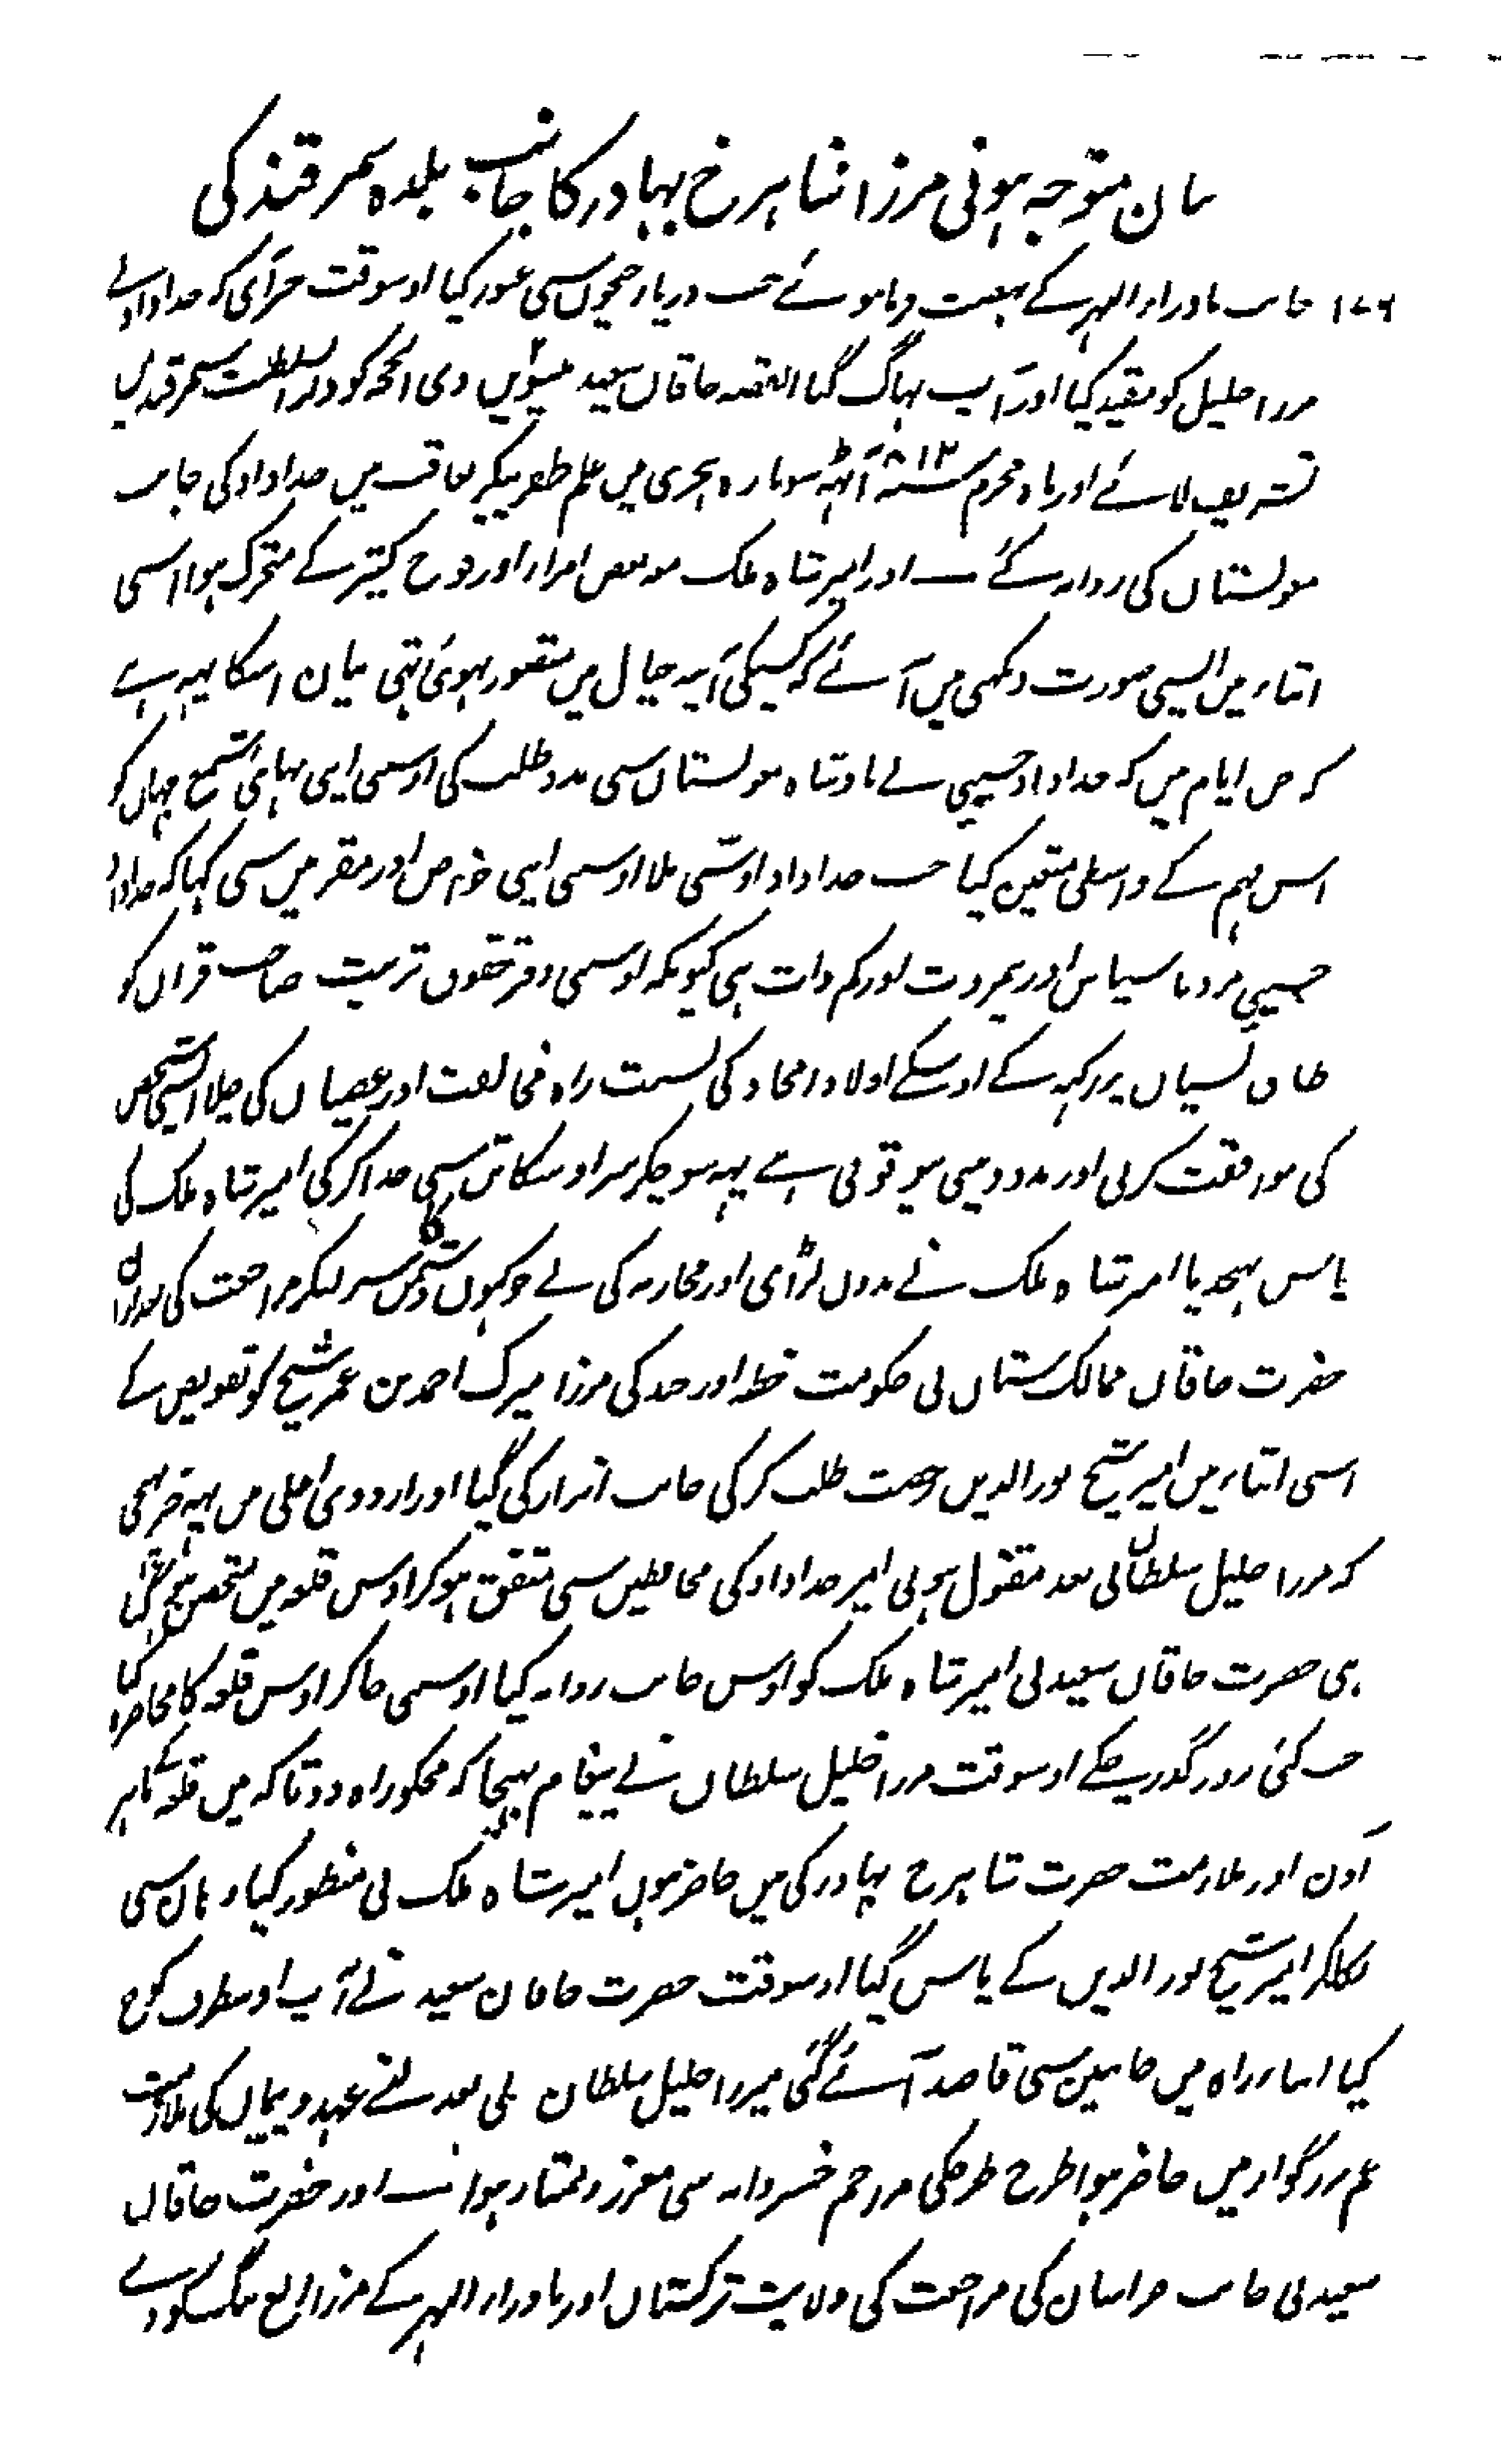 بیان متوجہ ہونی مرزا شاہرخ بہادر کا جانب بلدہ سمرقند کی
۱۷۶ جانب ماوراءالنہر کے نہضت فرما ہوئے جب دریاء جیحوں سی عبور کیا اوسوقت خبر آئی کہ خداداد نے
مرزا خلیل کو مقید کیا اور آپ بہاگ گیا القصہ خاقان سعید ستیویں ذی الحجہ کو دارالسلطنت سمرقند میں
تشریف لائے اور ماہ محرم ۸۱۲ سنہ آٹہہ سو بارہ ہجری میں علم ظفر پیکر تعاقب میں خداداد کی جانب
مغولستان کی روانہ کئے اور امیر شاہ ملک مع بعض امراء اور فوج کثیر کے متحرک ہوا اسی
اثناء میں ایسی صورت دکہی میں آئے کہ کسیکی آئینہ خیال میں متصور نہوئی تہی بیان اسکا یہہ ہے
کہ جن ایام میں کہ خداداد حسینی نے بادشاہ مغولستان سی مدد طلب کی اوسنی اپنی بہائی شمع جہاں کو
اس مہم کے واسطی متعین کیا جب خداداد اوسّی ملا اوسنی اپنی خواص اور مقربین سی کہا کہ خداداد
حسینی مرد ناسپاس اور بیمروت اور کم ذات ہی کیونکہ اوسنی دفتر حقوق تربیت صاحب قران کو
طاق نسیاں پر رکہہ کے اوسکے اولاد امجاد کی نسبت راہ مخالفت اور عصیاں کی چلا ایسی شخص
کی موافقت کرنی اور مدد دینی بیوقوفی ہے یہہ سوچکر سر اوسکا تن سی جدا کر کی امیر شاہ ملک کی
پاس بہیجدیا امیر شاہ ملک نے بدون لڑائی اور محاربہ کی سر لیکر مراجعت کی
حضرت خاقاں ممالک ستاں نی حکومت خطہ اورجند کی مرزا میرک احمد بن عمر شیخ کو تفویض کے
اسی اثناء میں امیر شیخ نورالدین رخصت طلب کر کی جانب اترار کی گیا اور اردوی اعلی میں یہہ خبر پہنچی
کہ مرزا خلیل سلطان نی بعد مقتول ہونی امیر خداداد کی محافظین سی متفق ہو کر اوس قلعہ میں متحصن
ہی حضرت خاقاں سعید نی امیر شاہ ملک کو اوس جانب روانہ کیا اوسنی جا کر اوس قلعہ کا محاصرہ کیا
جب کئی روز گذر چکے اوسوقت مرزا خلیل سلطاں نے پیغام بہیجا کہ مجکو راہ دو تا کہ میں قلعہ کے باہر
آؤن اور ملازمت حضرت شاہرخ بہادر کی میں حاضر ہوں امیر شاہ ملک نی منظور کیا وہاں سی
نکلکر امیر شیخ نورالدین کے پاس گیا اوسوقت حضرت خاقان سعید نے آپ اوسطرف کوچ
کیا اثناء راہ میں جانبین سی قاصد آئے گئی میرزا خلیل سلطان بھی بعد لینے عہد و پیمان کی ملازمت
عم بزرگوار میں حاضر ہوا طرح طرحکی مراحم خسروانہ سی معزز و ممتاز ہوا اور حضرت خاقاں
سعید نی جانب خراسان کی مراجعت کی ولایت ترکستاں اور ماوراءالنہر کے مرزا الغ بیگ کو دے